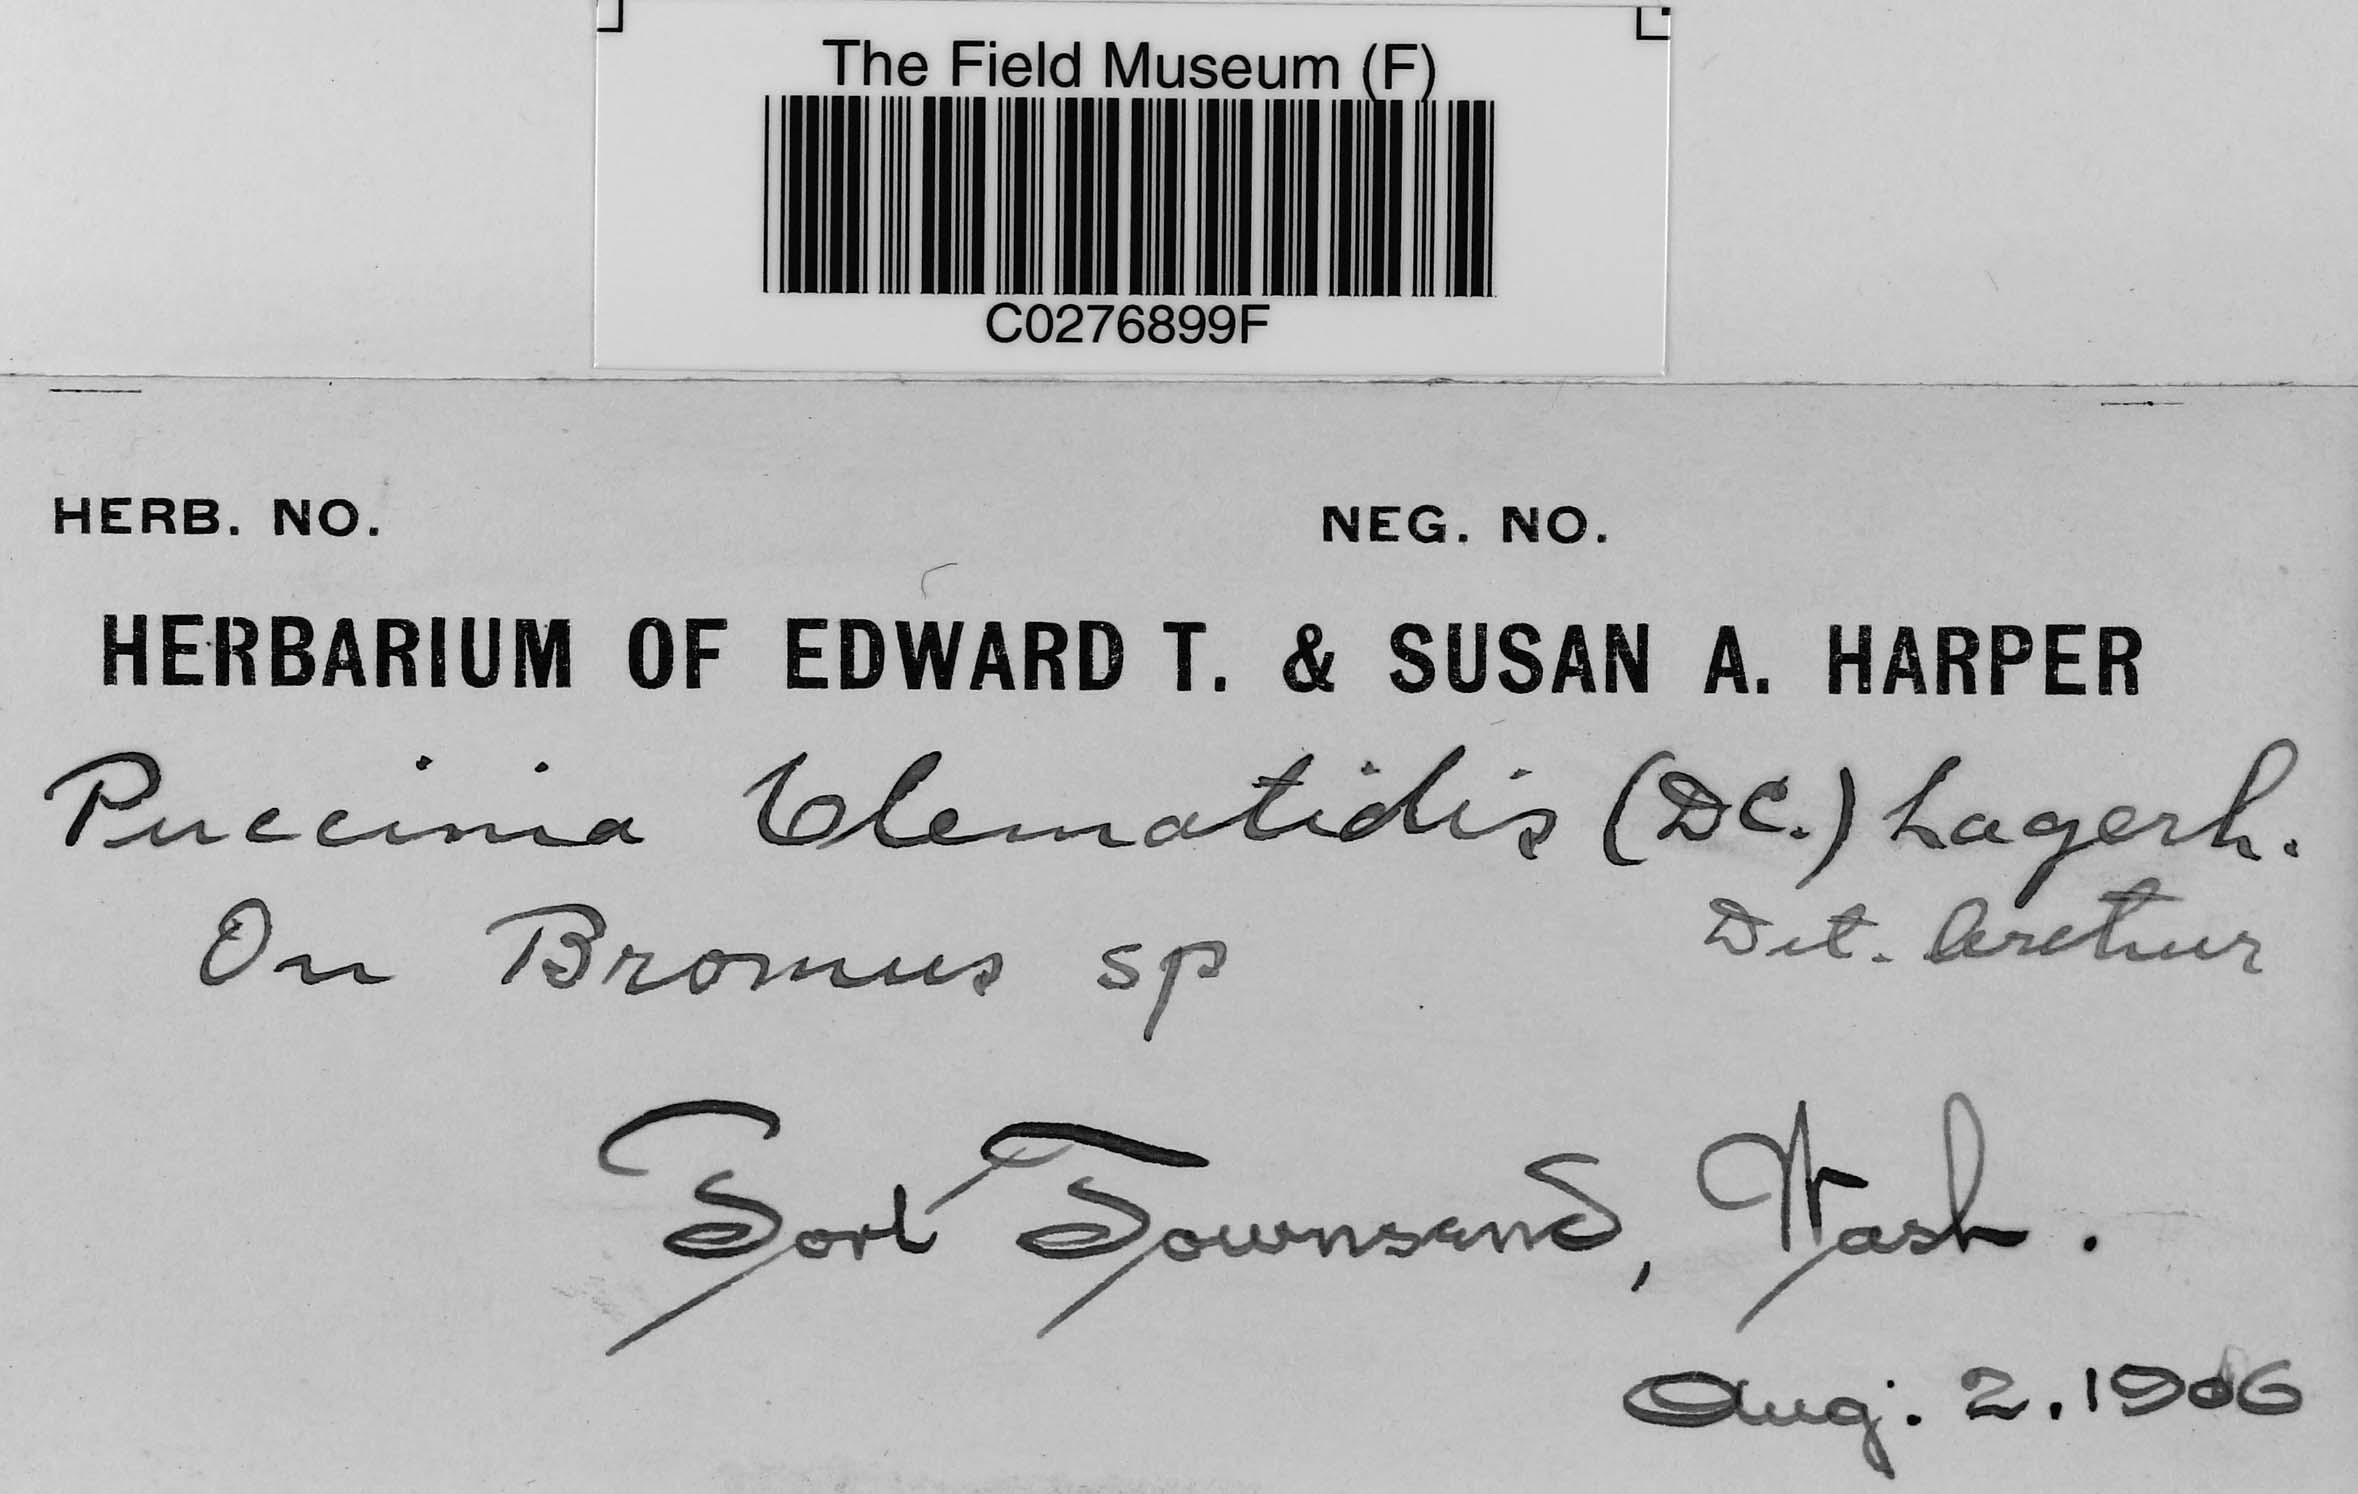 The Field Museum (F)
C0276899F
HERB. NO. NEG. NO.
HERBARIUM OF EDWARD T. & SUSAN A. HARPER
Puccinia Clematidis (DC.) Lagerh.
On Bromus sp Det. Arthur
Port Townsend, Wash.
Aug. 2. 1906